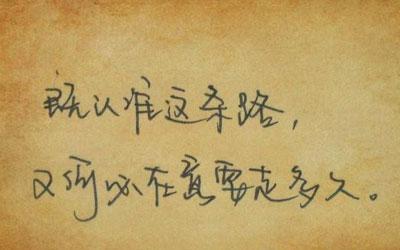 既认准这条路，
又何必在意要走多久。